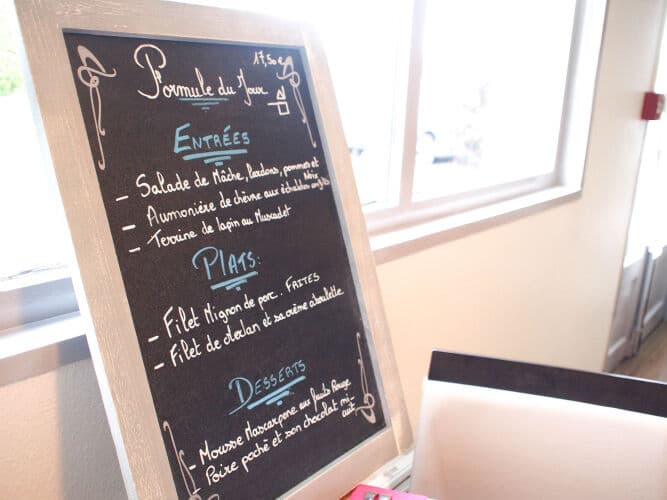 Formule du Jour 17,50 €
ENTRÉES
- Salade de Mâche, lardons, pommes et Noix
- Aumonière de chèvre aux échalotes confites
- Terrine de lapin au Muscadet
PLATS:
- Filet Mignon de porc. FRITES
- Filet de Merlan et sa crème ciboulette
DESSERTS
- Mousse Mascarpone aux fruits Rouge
- Poire poché et son chocolat mi-
cuit